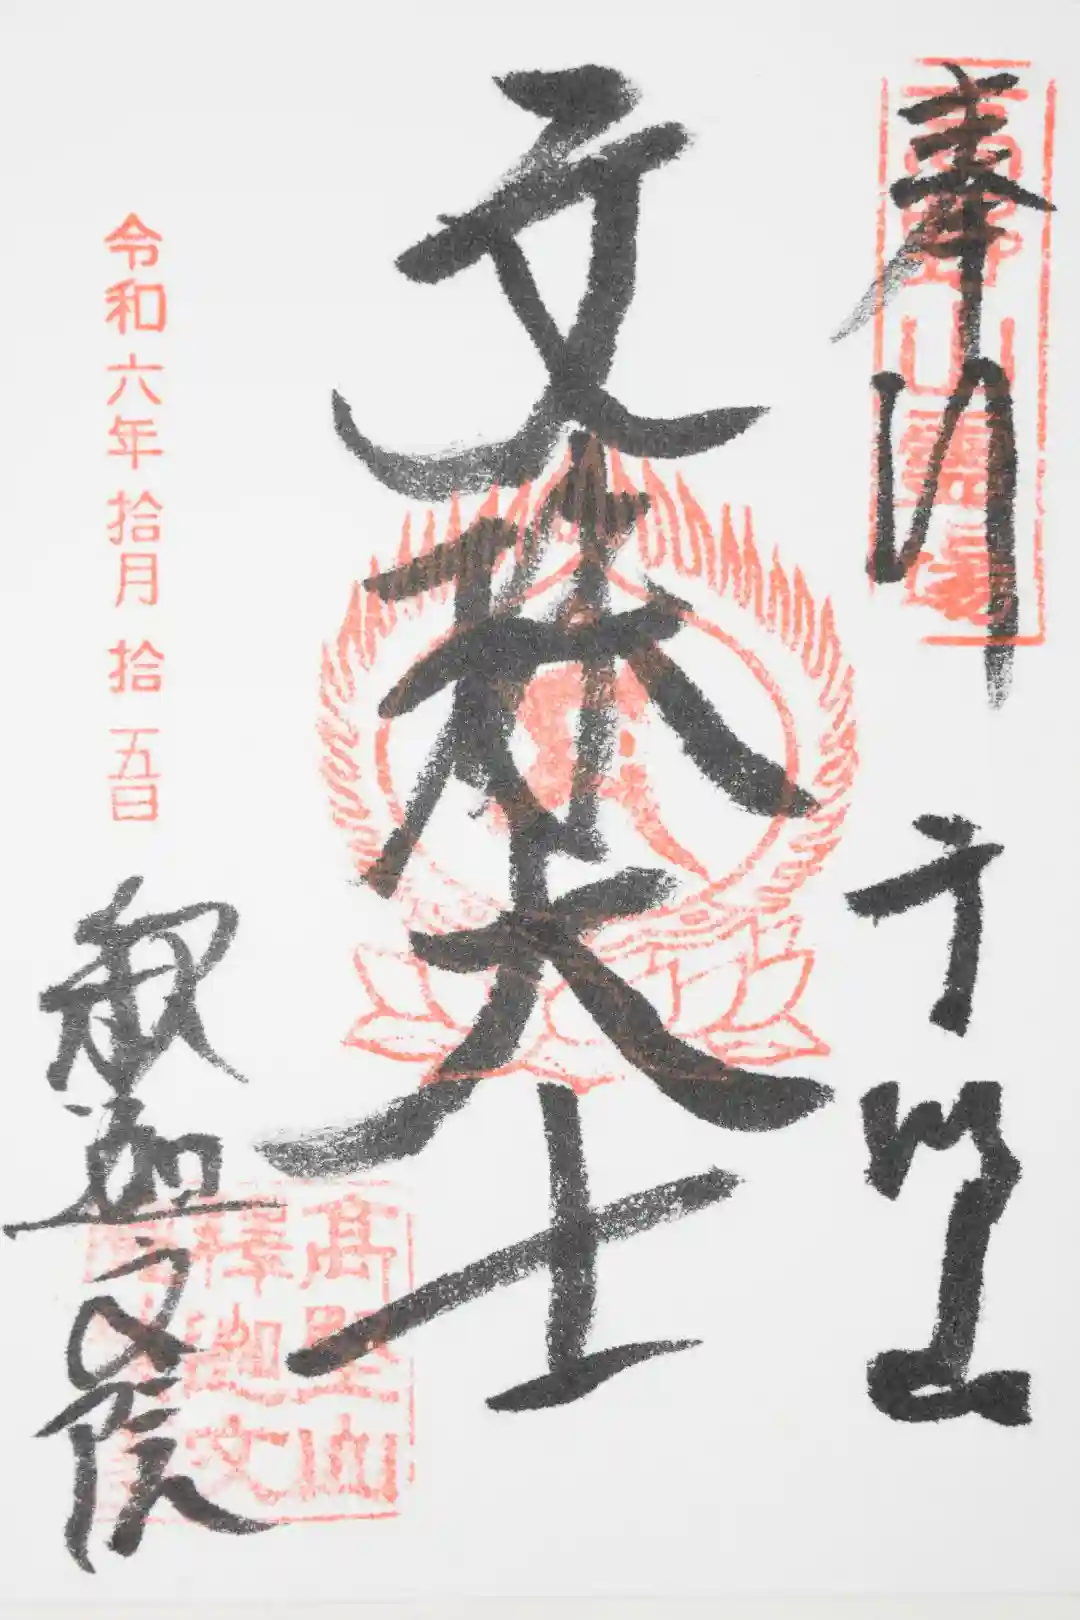 奉拝 高野山
高野山霊場
文殊大士
令和六年拾月拾五日
釈迦文院
高野山
釋迦文